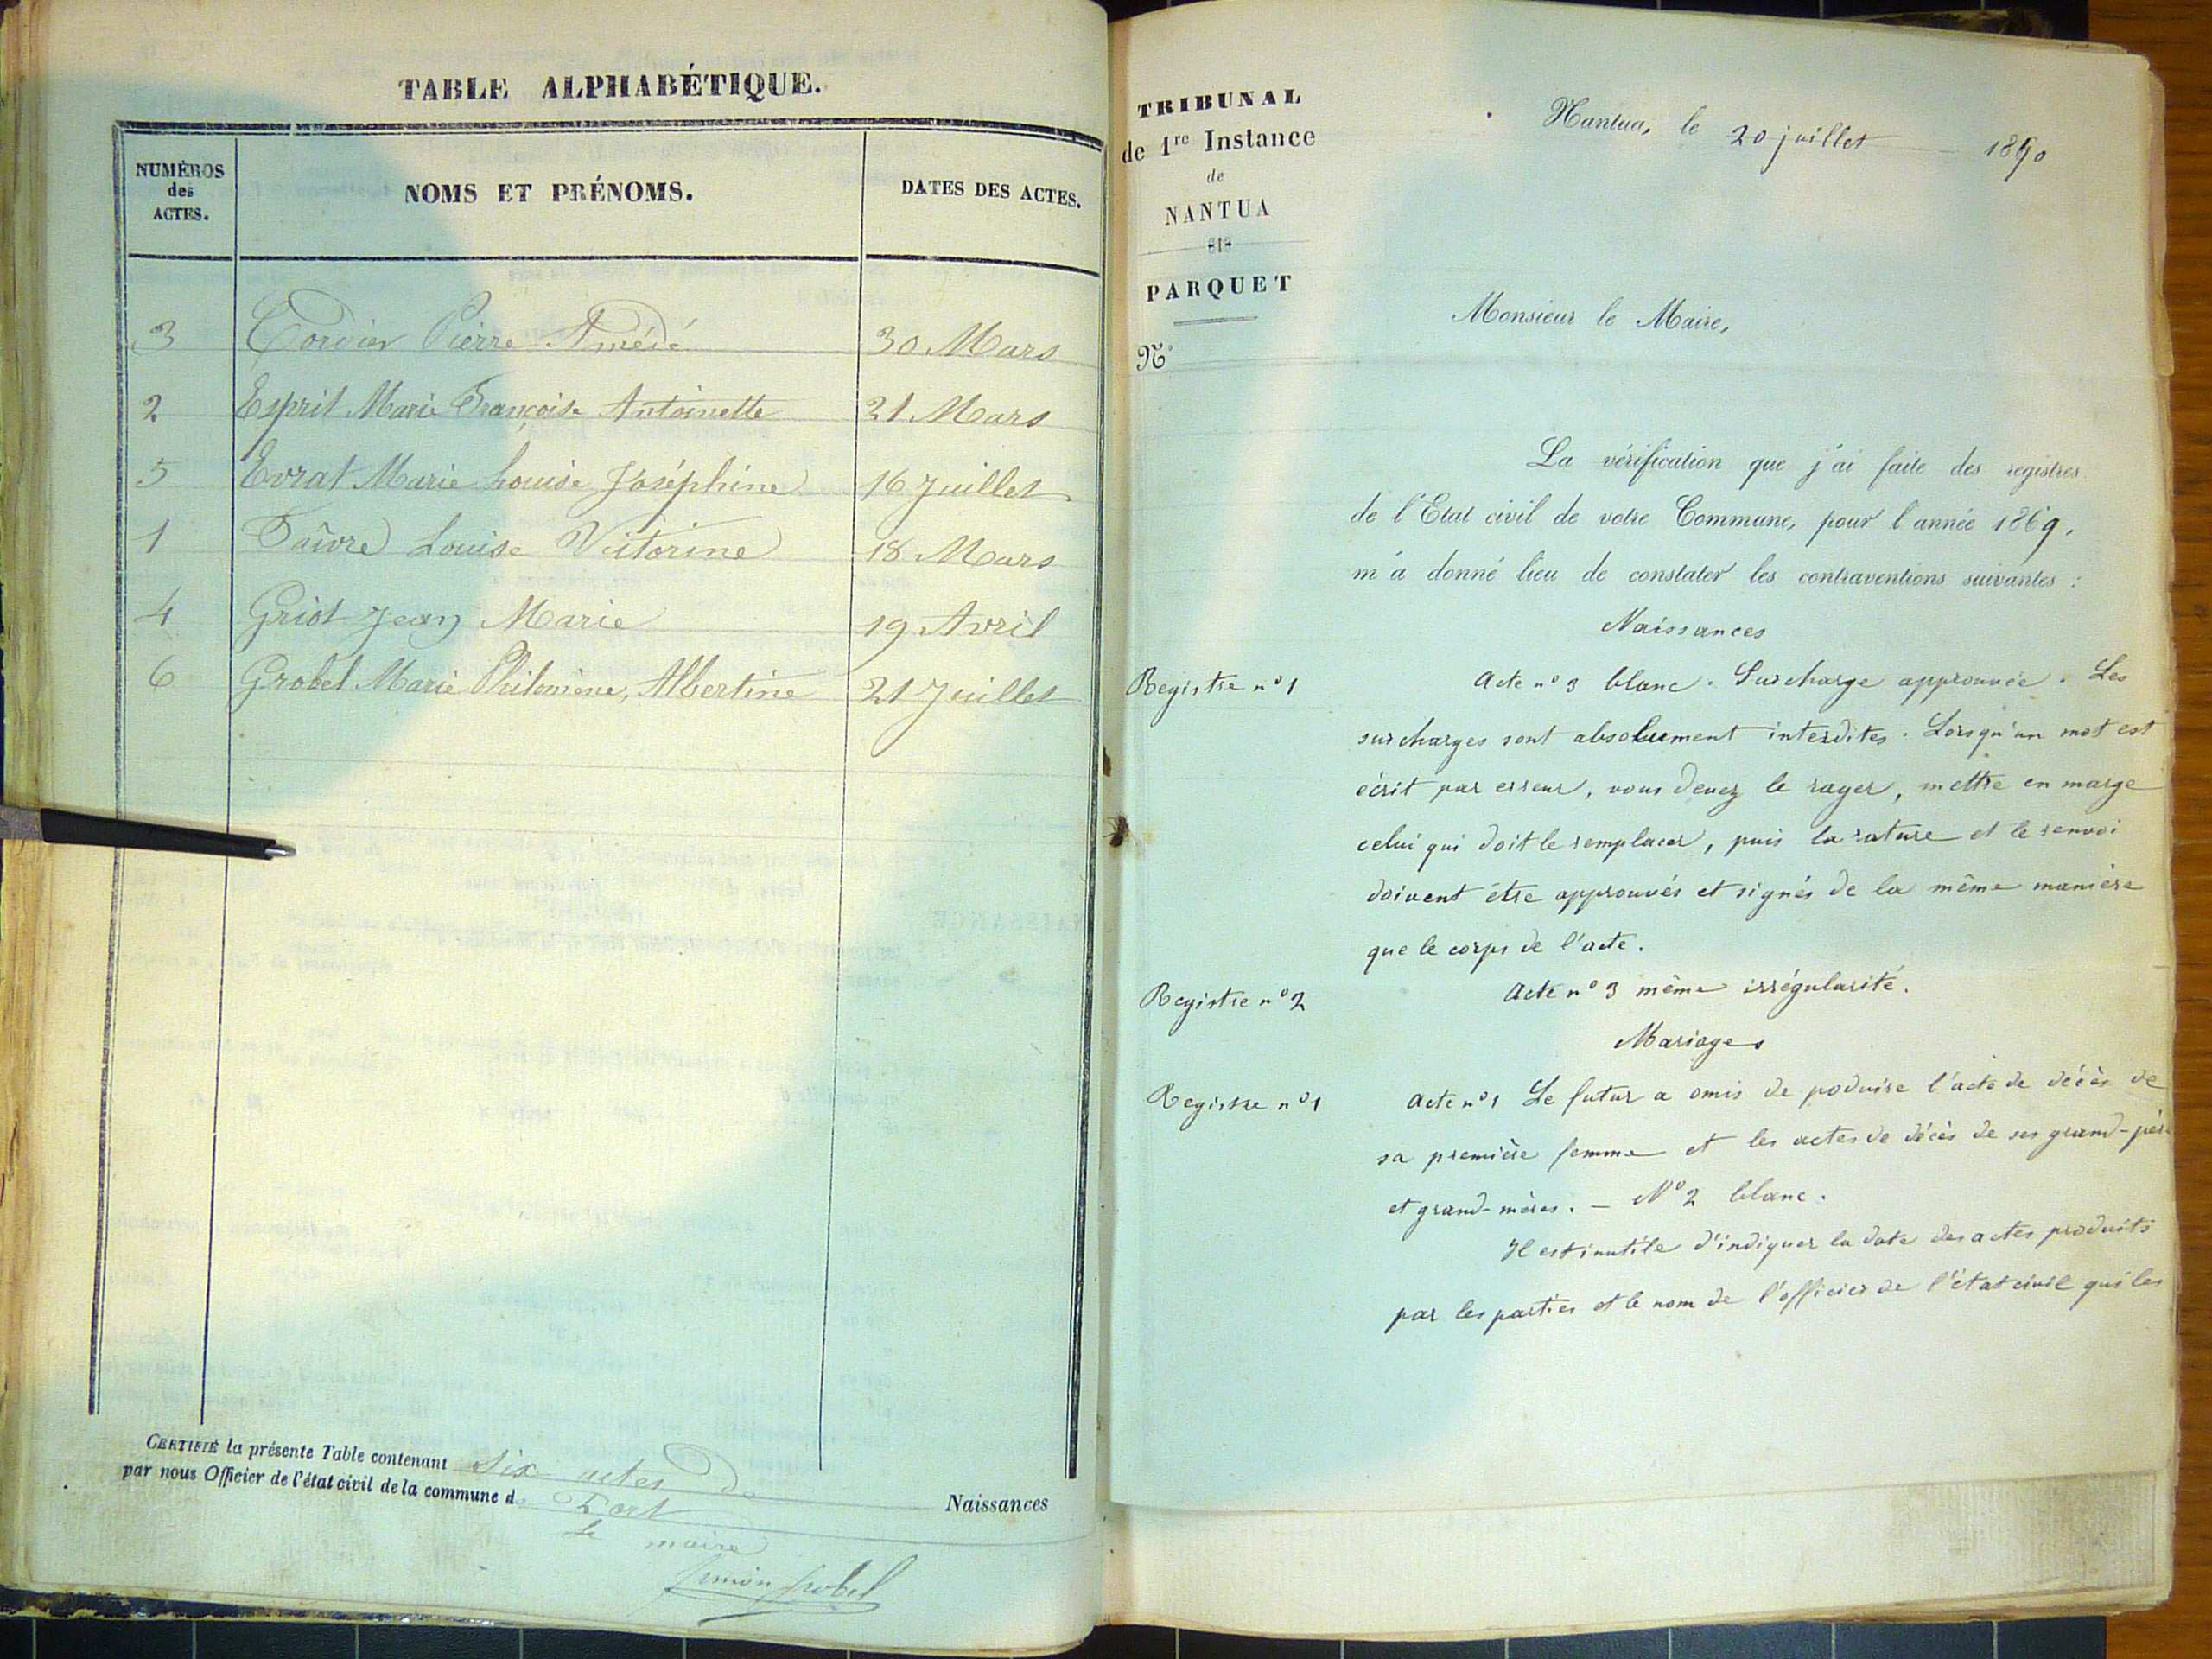 TABLE ALPHABÉTIQUE.
NUMÉROS des ACTES.
NOMS ET PRÉNOMS.
DATES DES ACTES.
3 Cordier Pierre Amédé 30 Mars
2 Esprit Marie Françoise Antoinette 21 Mars
5 Evrat Marie Louise Joséphine 16 Juillet
1 Faivre Louise Victorine 18 Mars
4 Griot Jean Marie 19 Avril
6 Grobel Marie Philomène, Albertine 21 Juillet
CERTIFIÉ la présente Table contenant six actes de Naissances
par nous Officier de l'état civil de la commune de Fort
Le maire
Simon Grobel
TRIBUNAL
de 1re Instance
de
NANTUA
PARQUET
N°
Nantua, le 20 juillet 1870
Monsieur le Maire,
La vérification que j'ai faite des registres
de l'Etat civil de votre Commune, pour l'année 1869,
m'a donné lieu de constater les contraventions suivantes :
Naissances
Registre n°1 Acte n°3 blanc. Surcharge approuvée. Les
surcharges sont absolument interdites. Lorsqu'un mot est
écrit par erreur, vous devez le rayer, mettre en marge
celui qui doit le remplacer, puis la rature et le renvoi
doivent être approuvés et signés de la même manière
que le corps de l'acte.
Registre n°2 Acte n°3 même irrégularité.
Mariages
Registre n°1 Acte n°1 Le futur a omis de poduire l'acte de décès de
sa première femme et les actes de décès de ses grand-père
et grand-mères. — N°2 blanc.
Il est inutile d'indiquer la date des actes produits
par les parties et le nom de l'officier de l'état civil qui les